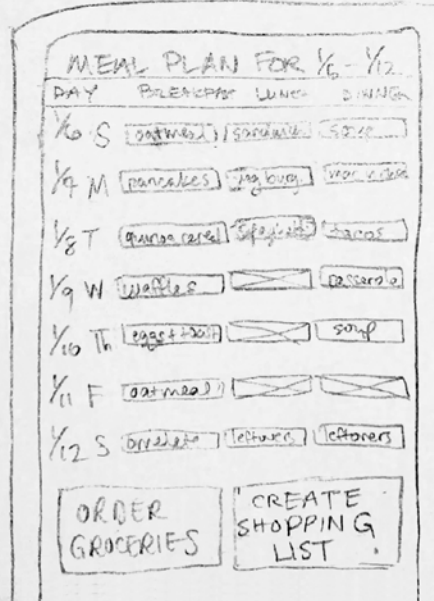 MEAL PLAN FOR 1/6 - 1/12
DAY BREAKFAST LUNCH DINNER
1/6 S oatmeal sandwich soup
1/7 M pancakes veg burg. mac n chee
1/8 T quinoa cereal spaghetti tacos
1/9 W waffles casserole
1/10 Th eggs + toast soup
1/11 F oatmeal
1/12 S omelete leftovers leftovers
ORDER
GROCERIES
CREATE
SHOPPING
LIST